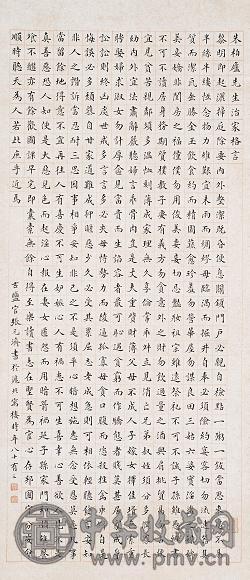 朱柏廬先生治家格言
黎明即起灑掃庭除要內外整潔既昏便息關鎖門戶必親自檢點一粥一飯當思來處不易
半絲半縷恆念物力維艱宜未雨而綢繆毋臨渴而掘井自奉必須儉約宴客切勿留連器具
質而潔瓦缶勝金玉飲食約而精園蔬愈珍饈勿營華屋勿謀良田三姑六婆實淫盜之媒婢
美妾嬌非閨房之福僮僕勿用俊美妻妾切忌豔妝祖宗雖遠祭祀不可不誠子孫雖愚經書
不可不讀居身務期質樸教子要有義方勿貪意外之財勿飲過量之酒與肩挑貿易毋佔便
宜見貧苦親鄰須多溫恤刻薄成家理無久享倫常乖舛立見消亡兄弟叔姪須分多潤寡長
幼內外宜法肅辭嚴聽婦言乖骨肉豈是丈夫重資財薄父母不成人子嫁女擇佳壻毋索重
聘娶婦求淑女勿計厚奩見富貴而生諂容者最可恥遇貧窮而作驕態者賤莫甚居家戒爭
訟訟則終凶處世戒多言言多必失毋恃勢力而凌逼孤寡勿貪口腹而恣殺生禽乖僻自是
悔誤必多頹惰自甘家道難成狎暱惡少久必受其累屈志老成急則可相依輕聽發言安知
非人之譖訴當忍耐三思因事相爭安知非我之不是須平心暗想施惠無念受恩莫忘凡事
當留餘地得意不宜再往人有喜慶不可生妒嫉心人有禍患不可生喜幸心善欲人見不是
真善惡恐人知便是大惡見色而起淫心報在妻女匿怨而用暗箭禍延子孫家門和順雖饔
飧不繼亦有餘歡國課早完即囊橐無餘自得至樂讀書志在聖賢為官心存君國守分安命
順時聽天為人若此庶乎近焉
古鹽官張元濟書於滬北寓樓時年八十有二
中华收藏网
www.pmv.cn